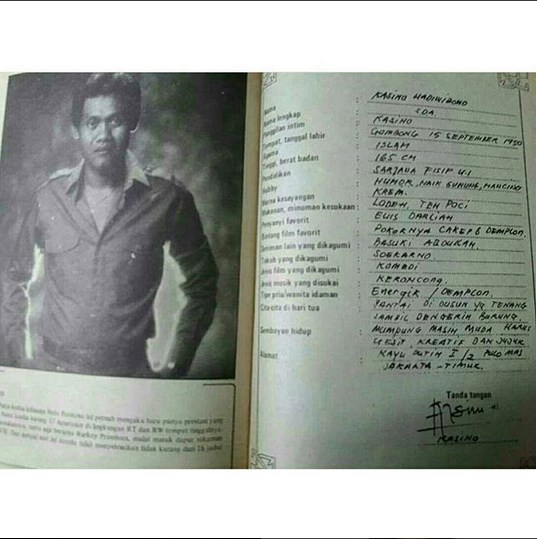 Nama : KASINO HADIWIBOWO
Nama lengkap : SDA.
Panggilan intim : KASINO
Tempat, tanggal lahir : GOMBONG 15 SEPTEMBER 1950
Agama : ISLAM
Tinggi, berat badan : 165 CM
Pendidikan : SARJANA FISIP U.I
Hobby : HUMOR, NAIK GUNUNG, MANCING
Warna kesayangan : KREM.
Makanan, minuman kesukaan : LODEH, TEH POCI
Penyanyi favorit : EUIS DARLIAH
Bintang film favorit : POKOKNYA CAKEP & DEMPLON.
Seniman lain yang dikagumi : BASUKI ABDULLAH.
Tokoh yang dikagumi : SOEKARNO.
Jenis film yang dikagumi : KOMEDI
Jenis musik yang disukai : KERONCONG.
Tipe pria/wanita idaman : Energik / DEMPLON.
Cita-cita di hari tua : PANTAI DI DUSUN YG TENANG
SAMBIL DENGERIN BURUNG
Semboyan hidup : MUMPUNG MASIH MUDA HARUS
GESIT, KREATIF DAN JUJUR
Alamat : KAYU PUTIH I/2 PULO MAS
JAKARTA - TIMUR.
Tanda tangan
KASINO
ini pernah mengaku baru punya prestasi yang
17 Agustusan di lingkungan RT dan RW tempat tinggalnya.
bersama Warkop Prambors, mulai masuk dapur rekaman
tidak kurang dari 18 judul